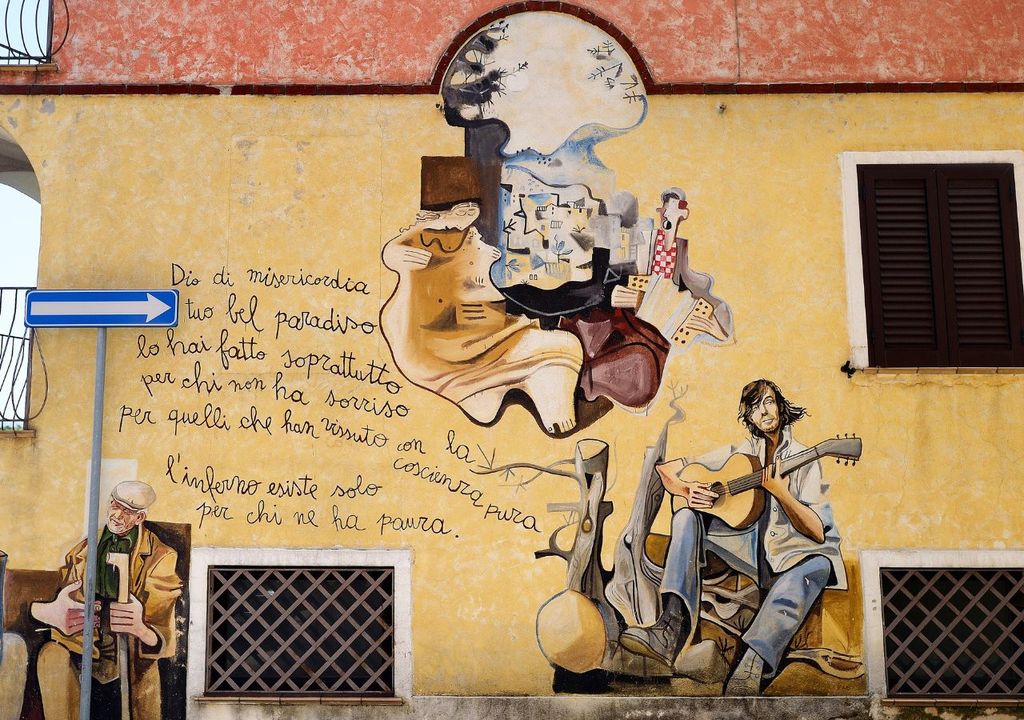 Dio di misericordia
tuo bel paradiso
lo hai fatto soprattutto
per chi non ha sorriso
per quelli che han vissuto con la
coscienza pura
l'inferno esiste solo
per chi ne ha paura.